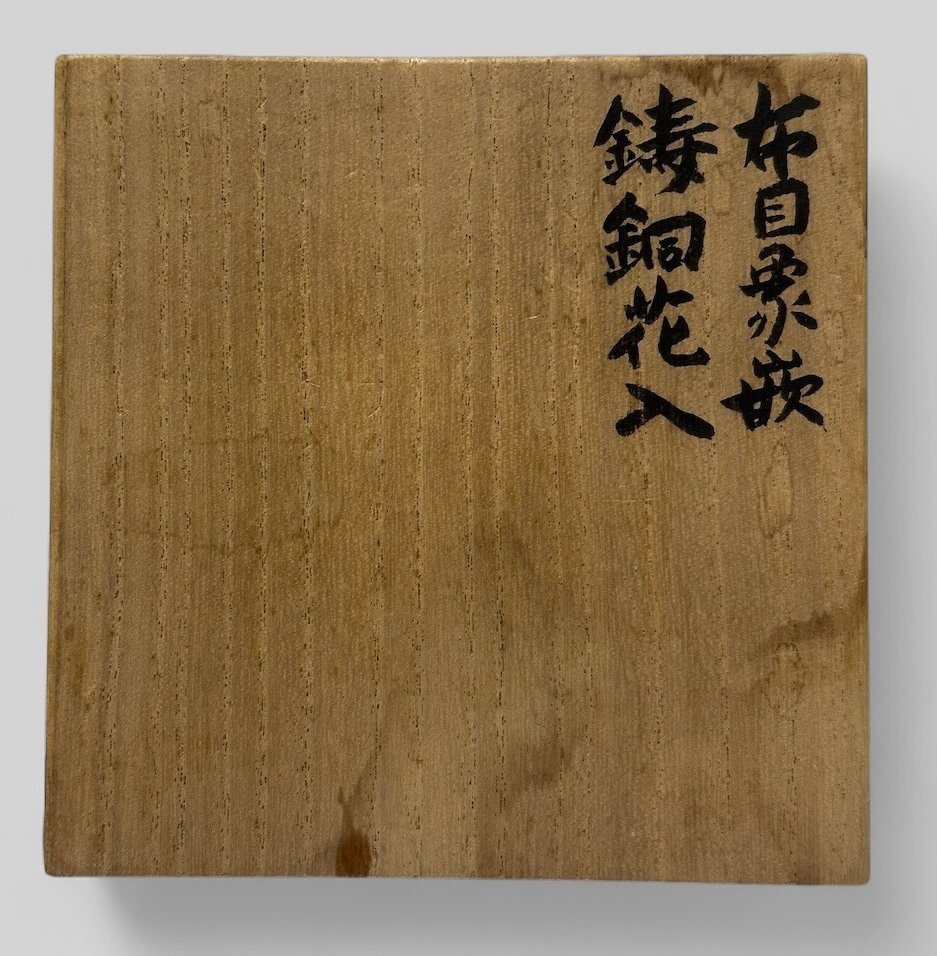 布目象嵌
鋳銅花入